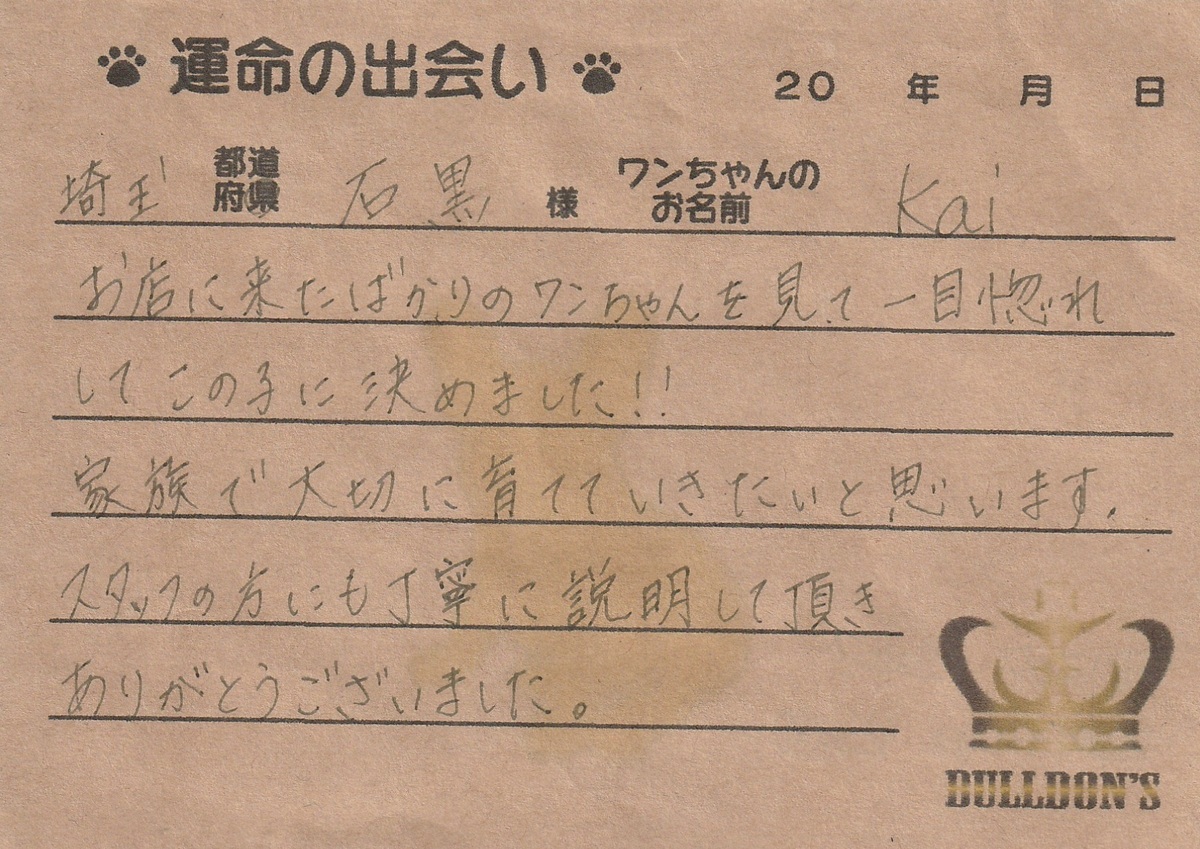 運命の出会い 20 年 月 日
埼玉 都道府県 石黒 様 ワンちゃんのお名前 Kai
お店に来たばかりのワンちゃんを見て一目惚れ
してこの子に決めました!!
家族で大切に育てていきたいと思います.
スタッフの方にも丁寧に説明して頂き
ありがとうございました。
DULLDON'S